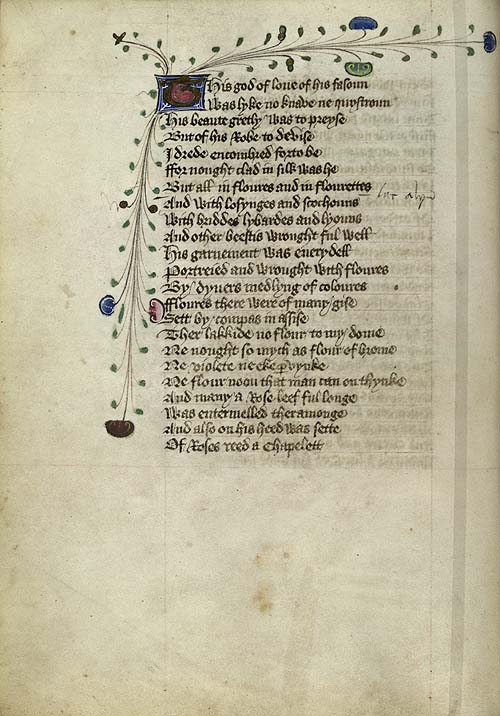 This god of loue of his fasoun
Was lyke no knaue ne quystroun
His beaute gretly was to preyse
But of his Robe to deuise
I drede encombred forto be
ffor nought clad in silk was he
But all in floures and in flourettes
And with losynges and scochouns
With briddes lybardes and lyouns
And other beestis wrought ful well
His garnement was euerydell
Portreied and wrought with floures
By dyuers medlyng of coloures
Offloures there were of many gise
Sett by compas in assise
Ther lakkide no flour to my dome
Ne nought so mych as flour of brome
Ne violete ne eke pervynke
Ne flour noon that man can on thynke
And many a Rose leef ful longe
Was entermelled theramonge
And also on his heed was sette
Of Roses reed a Chapelett